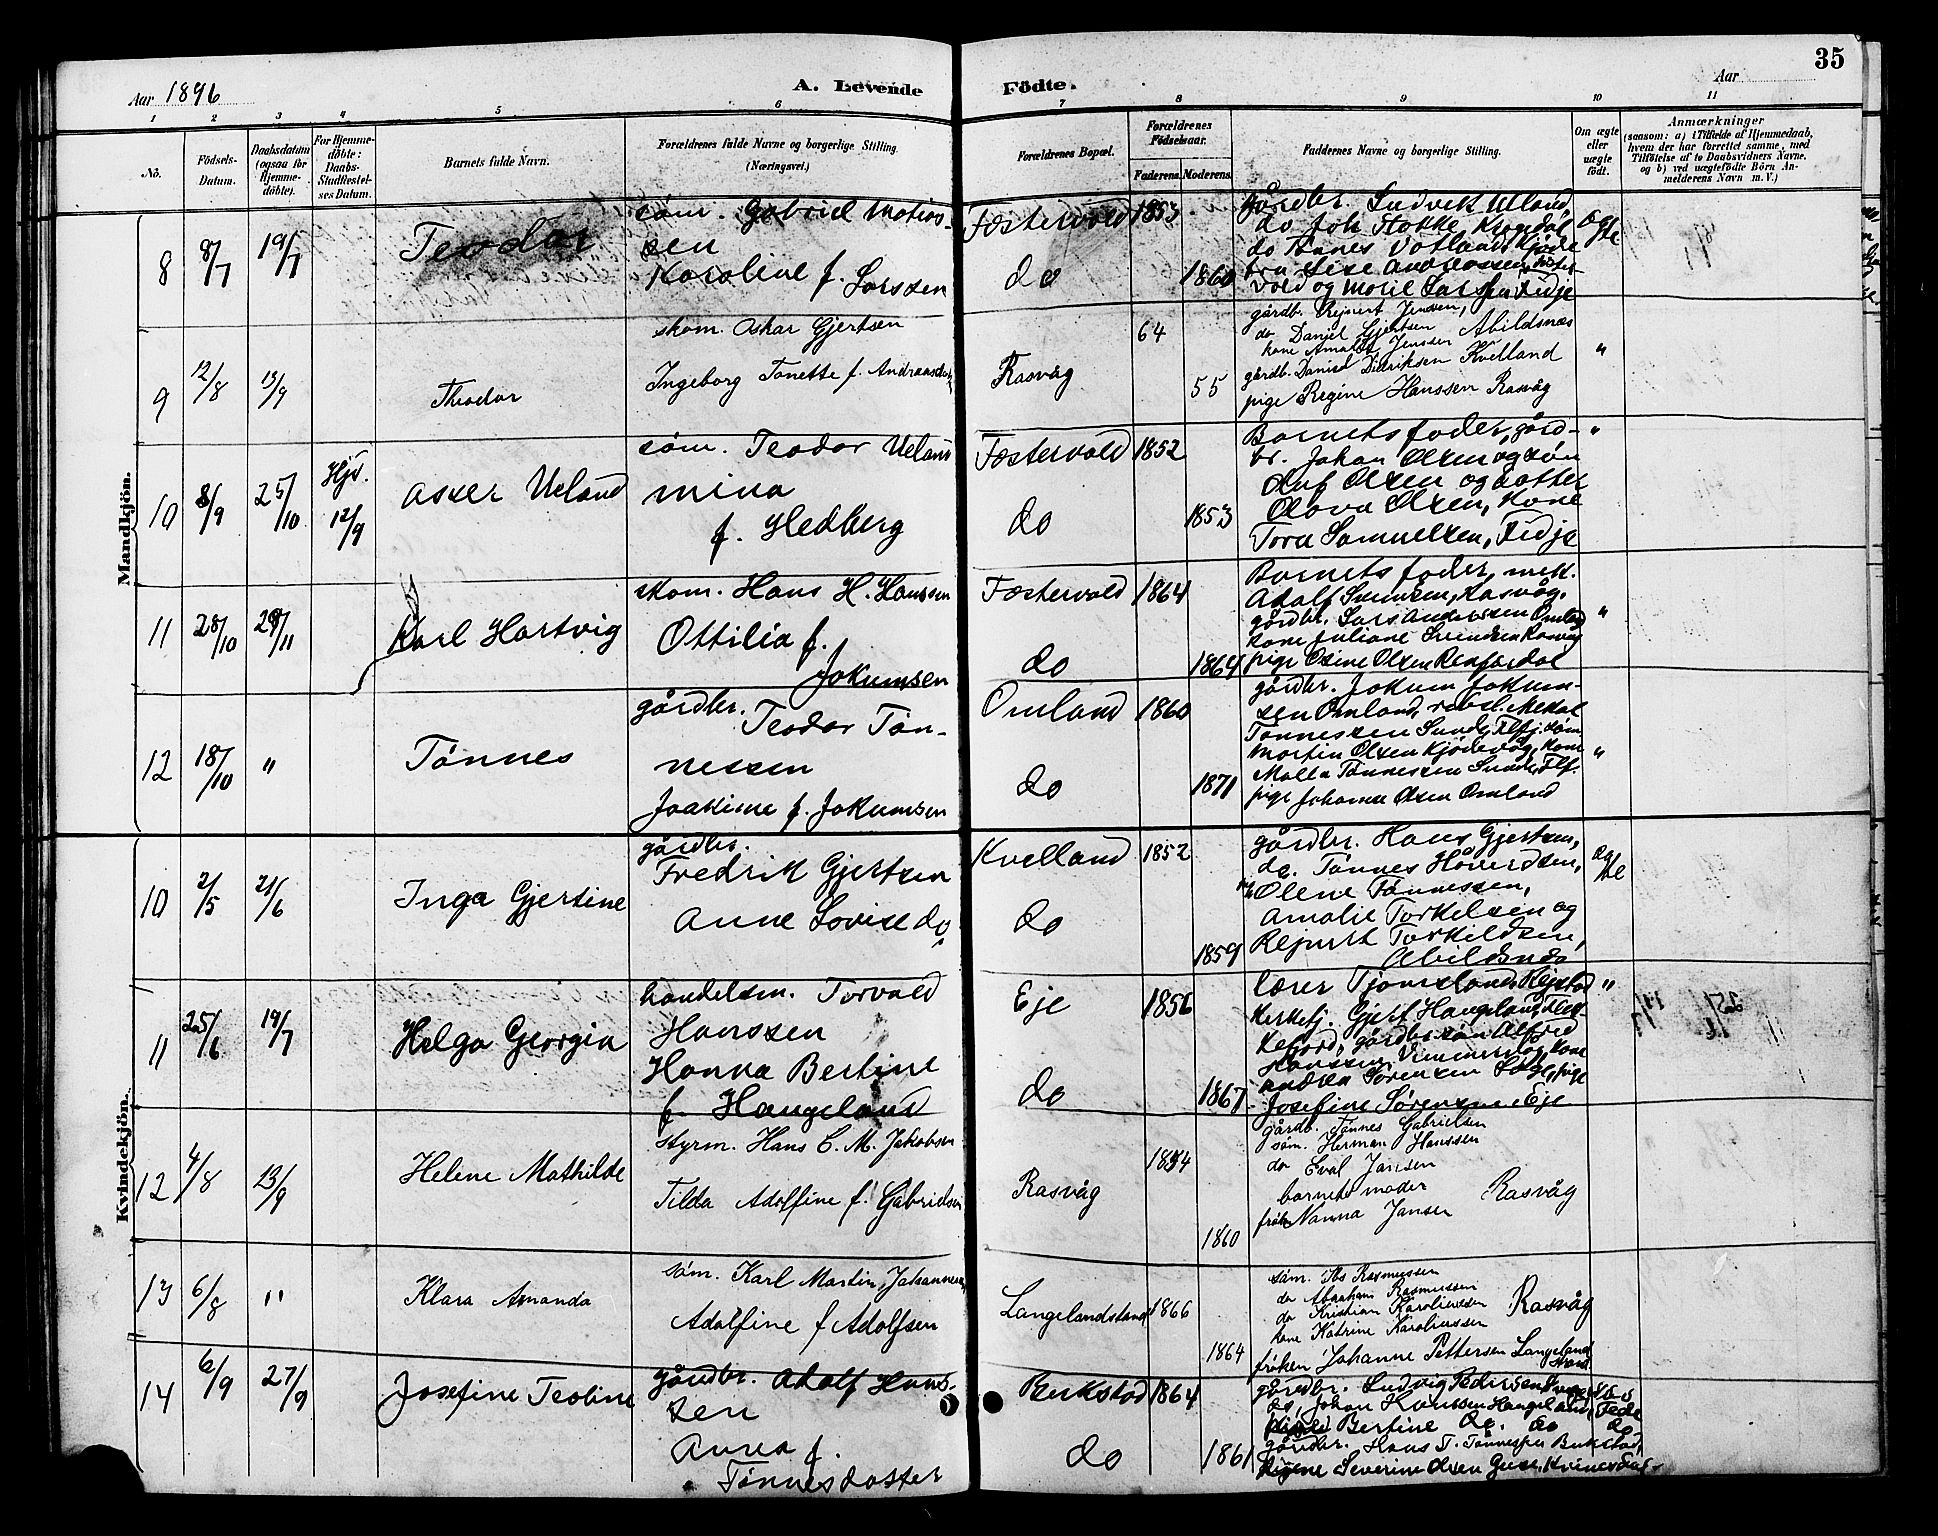 35
Aar 1896
A. Levende
Födte.
Aar
1 2 3 4 5 6 7 8 9 10 11
No.
Födsels-Datum.
Daabsdatum (ogsaa for Hjemme-döbte).
For Hjemme-döbte: Daabs-Stadfestel-ses Datum.
Barnets fulde Navn.
Forældrenes fulde Navne og borgerlige Stilling. (Næringsvei.)
Forældrenes Bopæl.
Forældrenes Födselsaar.
Faderens. Moderens.
Faddernes Navne og borgerlige Stilling.
Om ægte eller uægte födt.
Anmærkninger
(saasom: a) i Tilfælde af Hjemmedaab, hvem der har forrettet samme, med Tilföielse af to Daabsvidners Navne, og b) ved uægtefödte Börn Anmelderens Navn m. V.)
Mandkjön.
8 8/7 19/7 Teodor
söm. Gabriel Matias-
sen
Karoline f. Larssen
Fostervold 1853
do 1860
gårdbr. Ludvik Uland
do Joh Stokke
do Tönnes
og Marie Larsen Fidje
Ægte
9 12/8 13/9 Theodor
skom. Oskar Gjertsen
Ingeborg Tonette f. Andreasdatter
Rasvåg 64
55
gårdb. Rejnert Jenssen,
do Daniel Gjertsen Abildsnæs
kone Amalie Jenssen
gårdb. Daniel Didriksen Kvelland
pige Regine Hanssen Rasvåg
"
10 8/9 25/10 Hjd. 12/9 Asser Ueland
söm. Teodor Ueland
Mina
f. Hedberg
Fostervold 1852
do 1853
Barnets fader, gård-
br. Johan Olsen og sön
Oluf Olsen og datter
Olava Olsen, kone
Tora Samuelsen, Fidje
"
11 28/10 29/11 Karl Hartvig
skom. Hans H. Hanssen
Ottilia f.
Jokumsen
Fostervold 1864
do 1864
Barnets fader,
Adolf Svensen, Rasvåg,
gårdbr. Lars Andersen Omland
kone Juliane Svendsen Rasvåg
pige Osine Olsen
"
12 18/10 " Tönnes
gårdbr.
Teodor Tön-
nessen
Joakime f. Jokumsen
Omland 1860
do 1871
gårdbr. Jokum Jokum-
sen Omland,
Tönnessen Sunde, Flfj. söm
Martin Olsen Kjörevåg, kone
Malla Tönnessen Sunde, Flf.
pige Johanne Olsen Omland
"
Kvindekjön.
10 2/5 21/6 Inga Gjertine
gårdbr.
Fredrik Gjertsen
Anne Lovise do
Kvelland 1852
do 1859
gårdbr. Hans Gjertsen,
do. Tönnes Håverdsen,
Olene Tönnessen,
Amalie Torkelsen og
Rejnert Torkildsen,
Abildsnæs
Ægte
11 25/6 19/7 Helga Georgia
handelsm. Torvald
Hanssen
Hanna Bertine
f. Hangeland
Eje 1856
do 1867
lærer Tjomsland, Rejstad
kirkesj. Gjert Hangeland, Flek-
kefjord, gårdbr.sön Alfred
Hanssen, kone
Andrea Sörensen pige
Josefine Sörensen Eje
"
12 4/8 13/9 Helene Mathilde
styrm. Hans C. M. Jakobsen
Tilda Adolfine f. Gabrielsen
Rasvåg 1854
1860
gårdb. Tönnes Gabrielsen
söm. Herman Hanssen
do Eval Jansen
barnets moder Rasvåg
frök Nanna Jansen
13 6/8 " Klara Amanda
söm. Karl Martin Johannesen
Adolfine f Adolfsen
Langelandstand 1866
1864
söm. Rasmussen
do Abraham Rasmussen
do Kristian Karoliussen Rasvåg
kone Katrine Karoliussen
fröken Johanne Pettersen Langeland
strand
14 6/9 27/9 Josefine Teoline
gårdbr. Adolf Hans-
sen
Anna f.
Tönnesdatter
Birkstad 1864
do 1861
gårdbr. Ludvig Pedersen
do. Johan Hanssen Hangeland, Fede
Bertine do. do do
gårdbr. Hans T. Tönnessen Birkstad,
Severine Olsen Kvinesdal